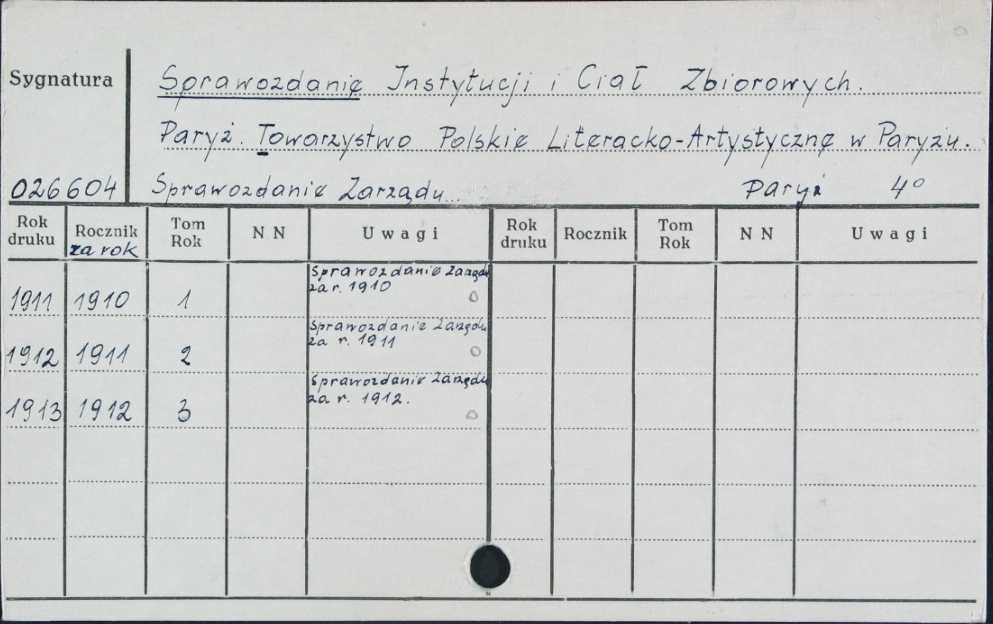 Sygnatura
Sprawozdanie Instytucji i Ciał Zbiorowych.
Paryż. Towarzystwo Polskie Literacko-Artystyczne w Paryżu.
026604 Sprawozdanie Zarządu... Paryż 4°
Rok druku Rocznik za rok Tom Rok N N Uwagi Rok druku Rocznik Tom Rok N N Uwagi
1911 1910 1 Sprawozdanie Zarządu za r. 1910
1912 1911 2 Sprawozdanie Zarządu za r. 1911
1913 1912 3 Sprawozdanie Zarządu za r. 1912.